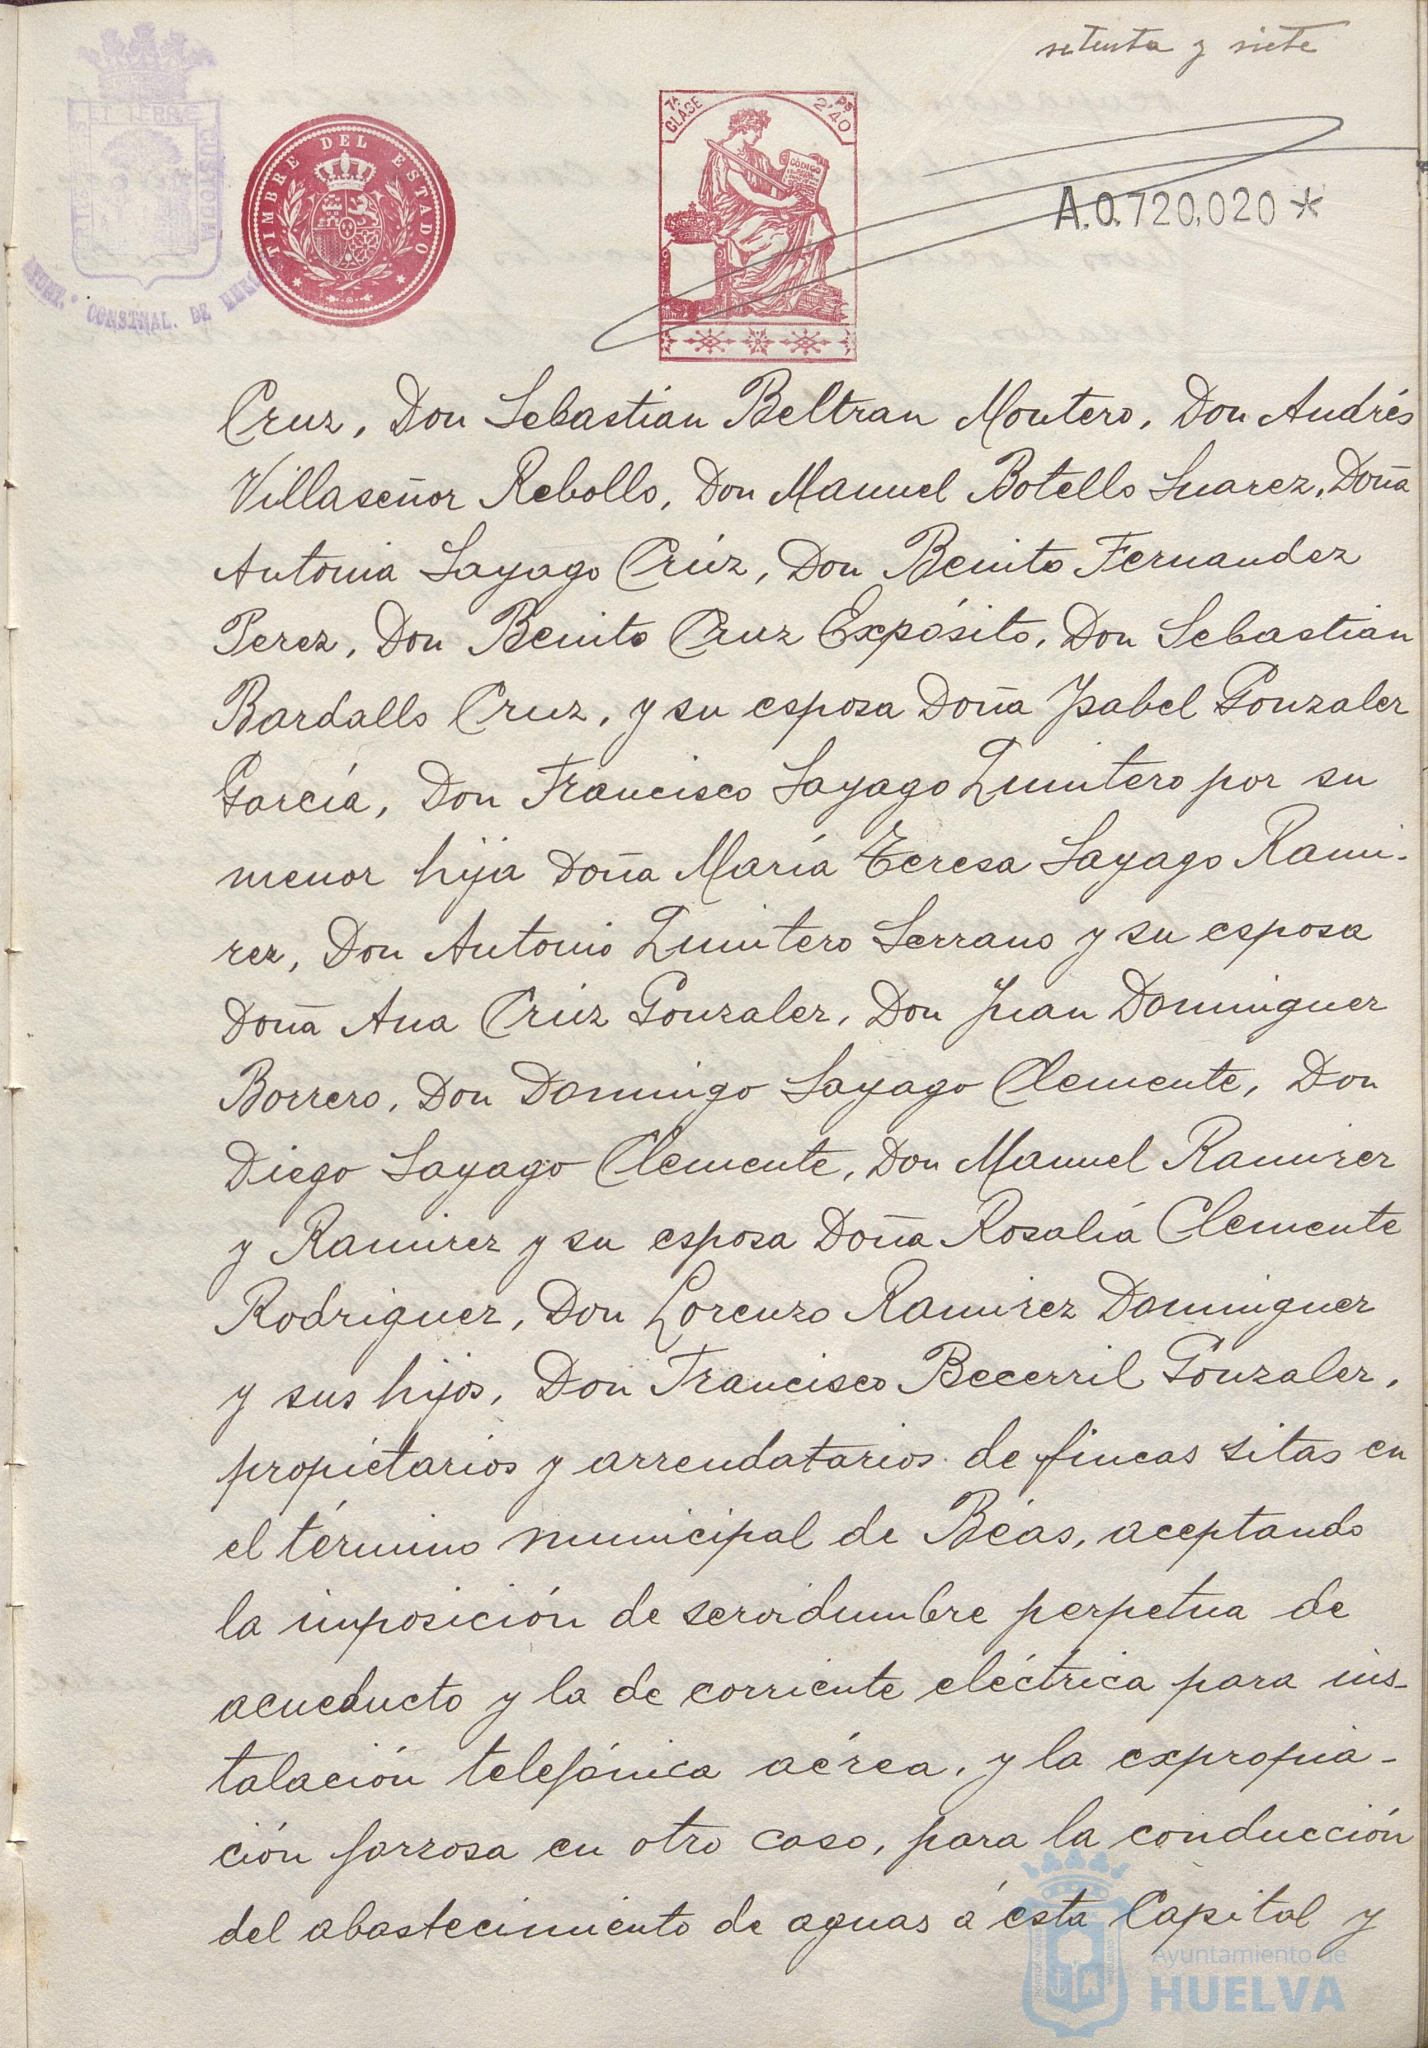 setenta y siete
TIMBRE DEL ESTADO
7ª CLASE
2'40 Ps
CODIGO
A.0.720,020*
CONSTNAL. DE
Cruz, Don Sebastián Beltran Montero, Don Andrés
Villaseñor Rebollo, Don Manuel Botello Suarez, Doña
Antonia Sayago Crúz, Don Benito Fernandez
Perez, Don Benito Cruz Expósito, Don Sebastián
Bardallo Cruz, y su esposa Doña Ysabel Gonzalez
García, Don Francisco Sayago Quintero por su
menor hija Doña María Teresa Sayago Rami-
rez, Don Antonio Quintero Serrano y su esposa
Doña Ana Crúz Gonzalez, Don Juan Dominguez
Borrero, Don Domingo Sayago Clemente, Don
Diego Sayago Clemente, Don Manuel Ramirez
y Ramirez y su esposa Doña Rosalía Clemente
Rodriguez, Don Lorenzo Ramirez Dominguez
y sus hijos, Don Francisco Becerril Gonzalez,
propietarios y arrendatarios de fincas sitas en
el término municipal de Béas, aceptando
la imposición de servidumbre perpetua de
acueducto y la de corriente eléctrica para ins-
talación telefónica aérea, y la expropia-
ción forzosa en otro caso, para la conducción
del abastecimiento de aguas á ésta Capital y
Ayuntamiento de
HUELVA